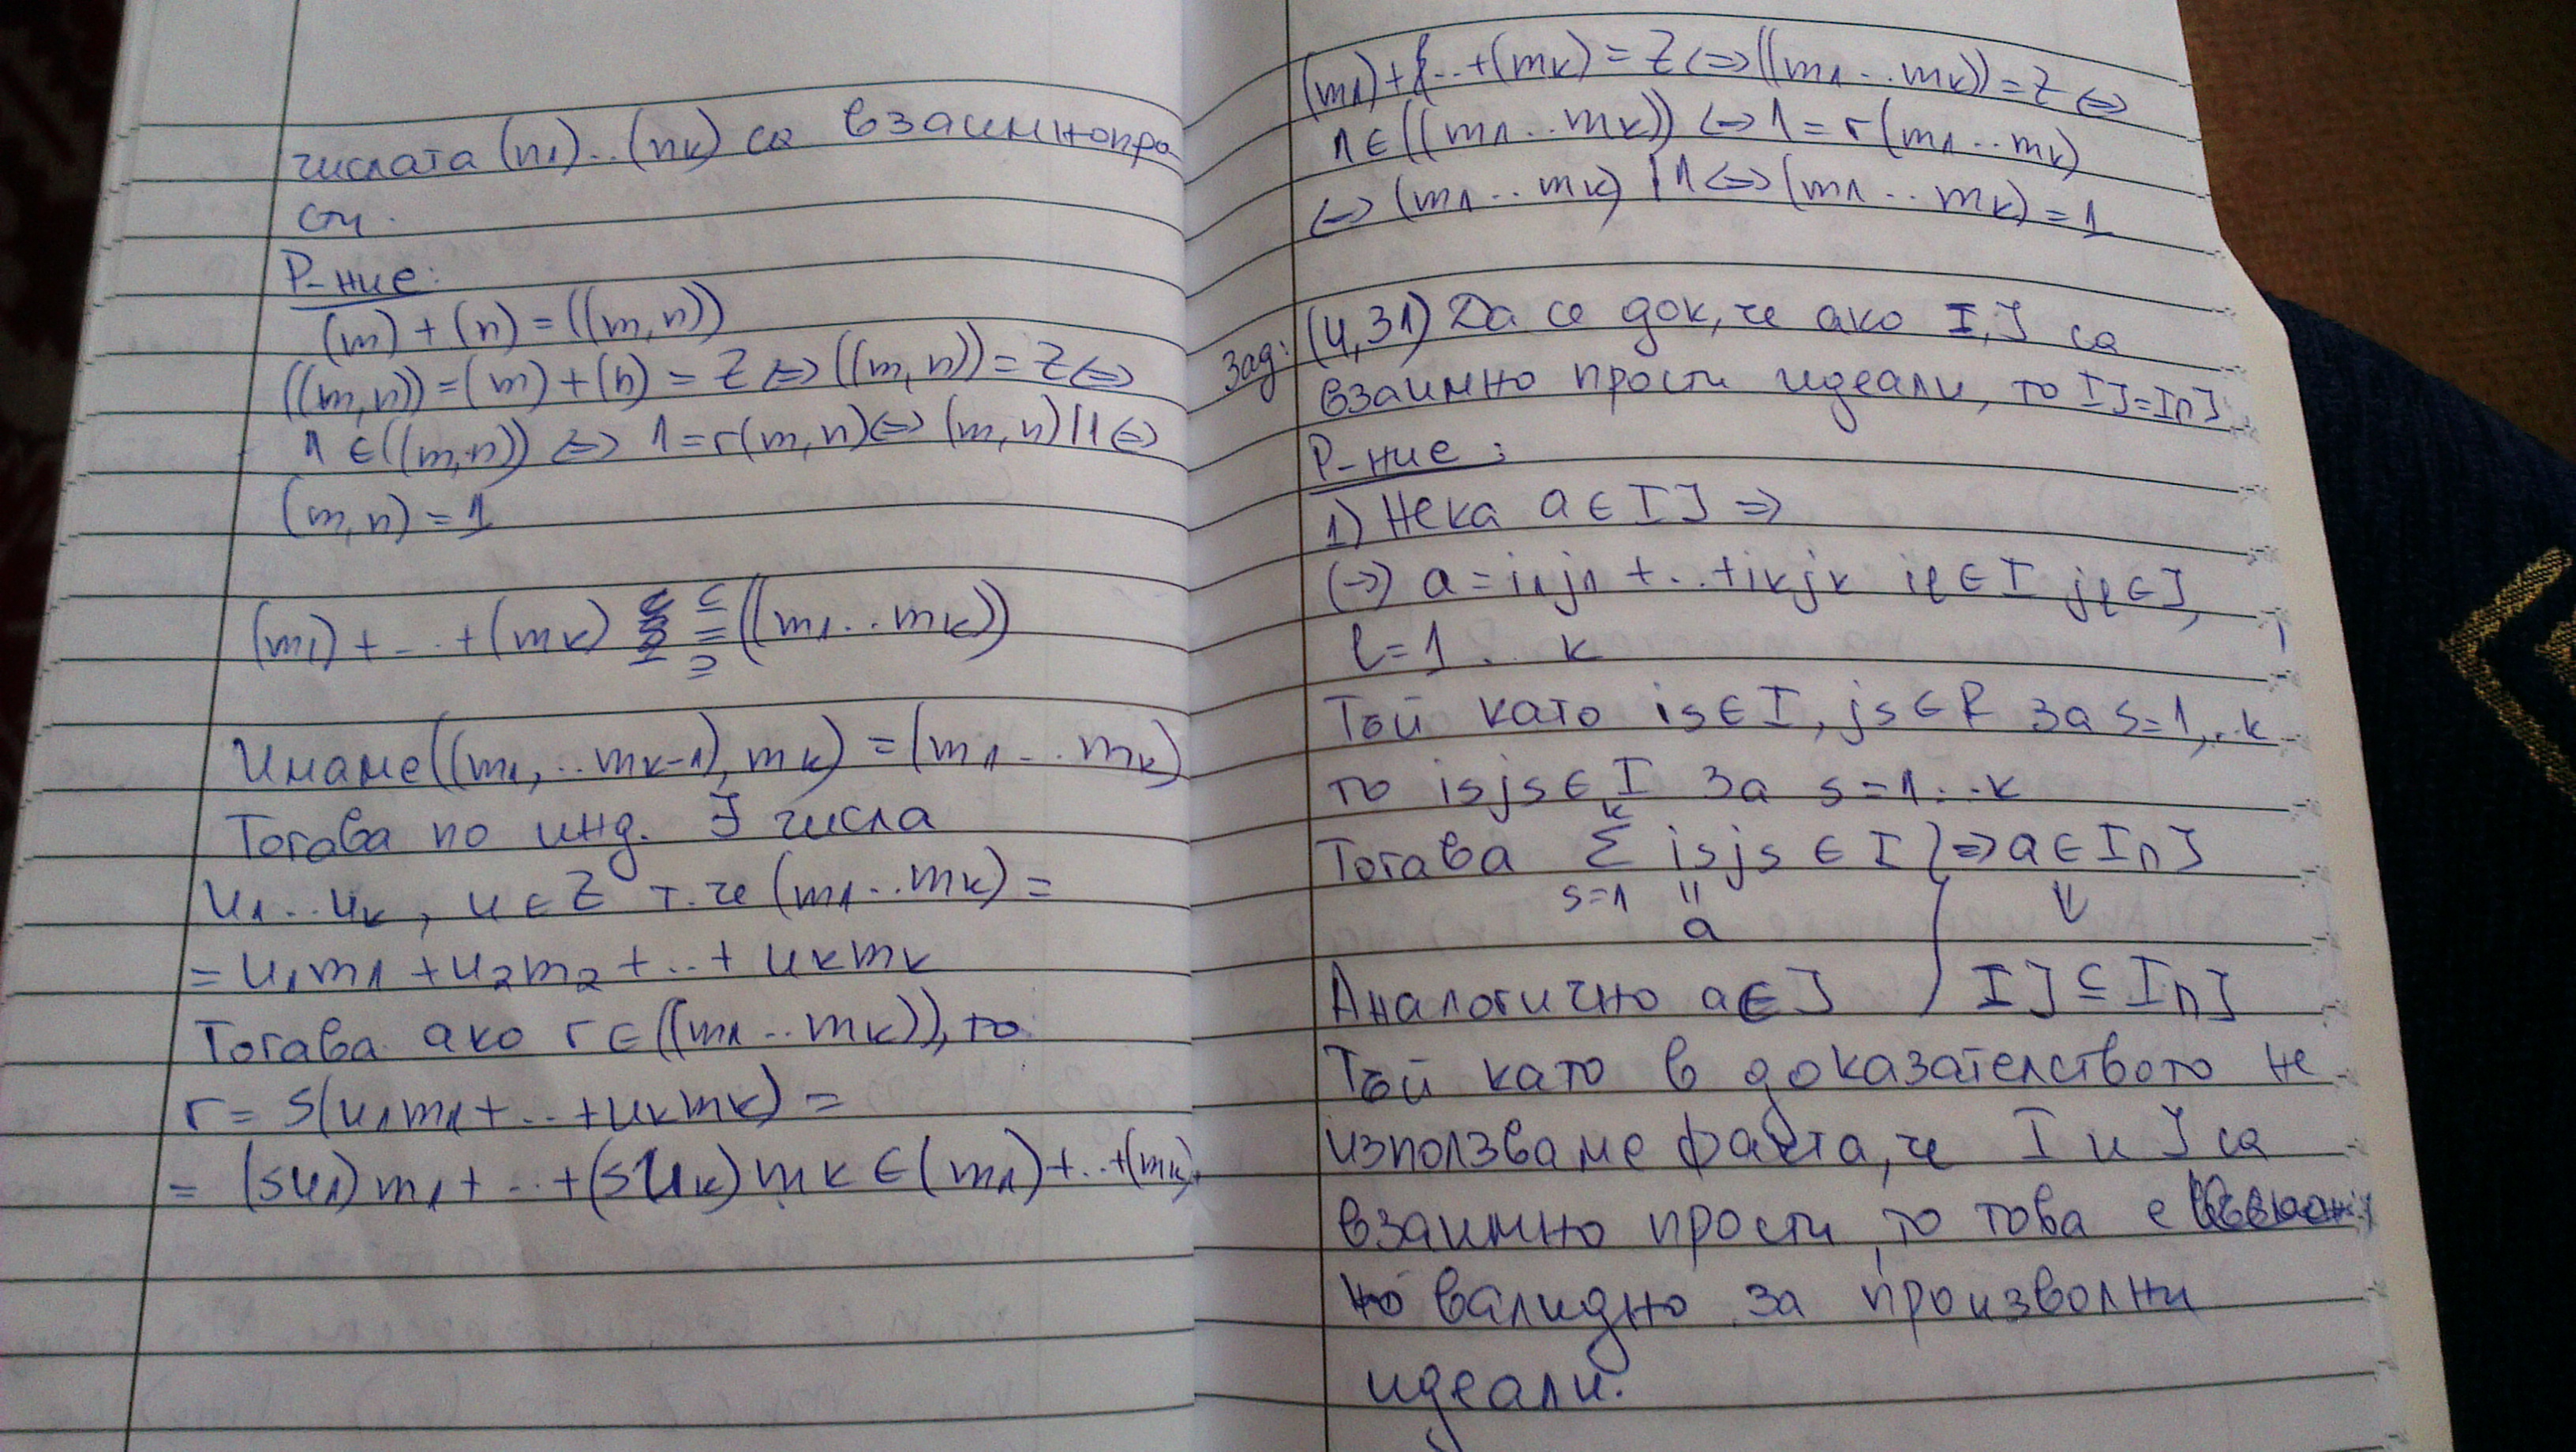 числата (n1)..(nk) са взаимнопро
сти.
Р-ние:
(m) + (n) = ((m,n))
((m,n)) = (m) + (n) = Z <=> ((m,n)) = Z <=>
1 ∈ ((m,n)) <=> 1 = r(m,n) <=> (m,n) | 1 <=>
(m,n) = 1
(m1) + ... + (mk) ⊆ = ⊇ ((m1..mk))
Имаме ((m1,..mk-1), mk) = (m1...mk)
Тогава по инд. ∃ числа
u1..uk, u ∈ Z т.че (m1..mk) =
= u1m1 + u2m2 + ..+ ukmk
Тогава ако r ∈ ((m1..mk)), то
r = s(u1m1 + .. + ukmk) =
= (su1)m1 + .. + (suk)mk ∈ (m1) + .. + (mk).
(m1) + ... + (mk) = Z <=> ((m1...mk)) = Z <=>
1 ∈ ((m1..mk)) <=> 1 = r(m1..mk)
<=> (m1..mk) | 1 <=> (m1..mk) = 1
Зад: (4,31) Да се док, че ако I,J са
взаимно прости идеали, то IJ=I∩J
Р-ние:
1) Нека a ∈ IJ =>
(->) a = i1j1 + .. + ikjk il ∈ I jl ∈ J,
l = 1 .. k
Той като is ∈ I, js ∈ R за s=1,..k
то isjs ∈ I за s=1..k
Тогава k∑s=1 isjs ∈ I } => a ∈ I∩J
= a ⇓
Аналогично a ∈ J IJ ⊆ I∩J
Той като в доказателството не
използваме факта, че I и J са
взаимно прости, то това е
валидно за произволни
идеали.